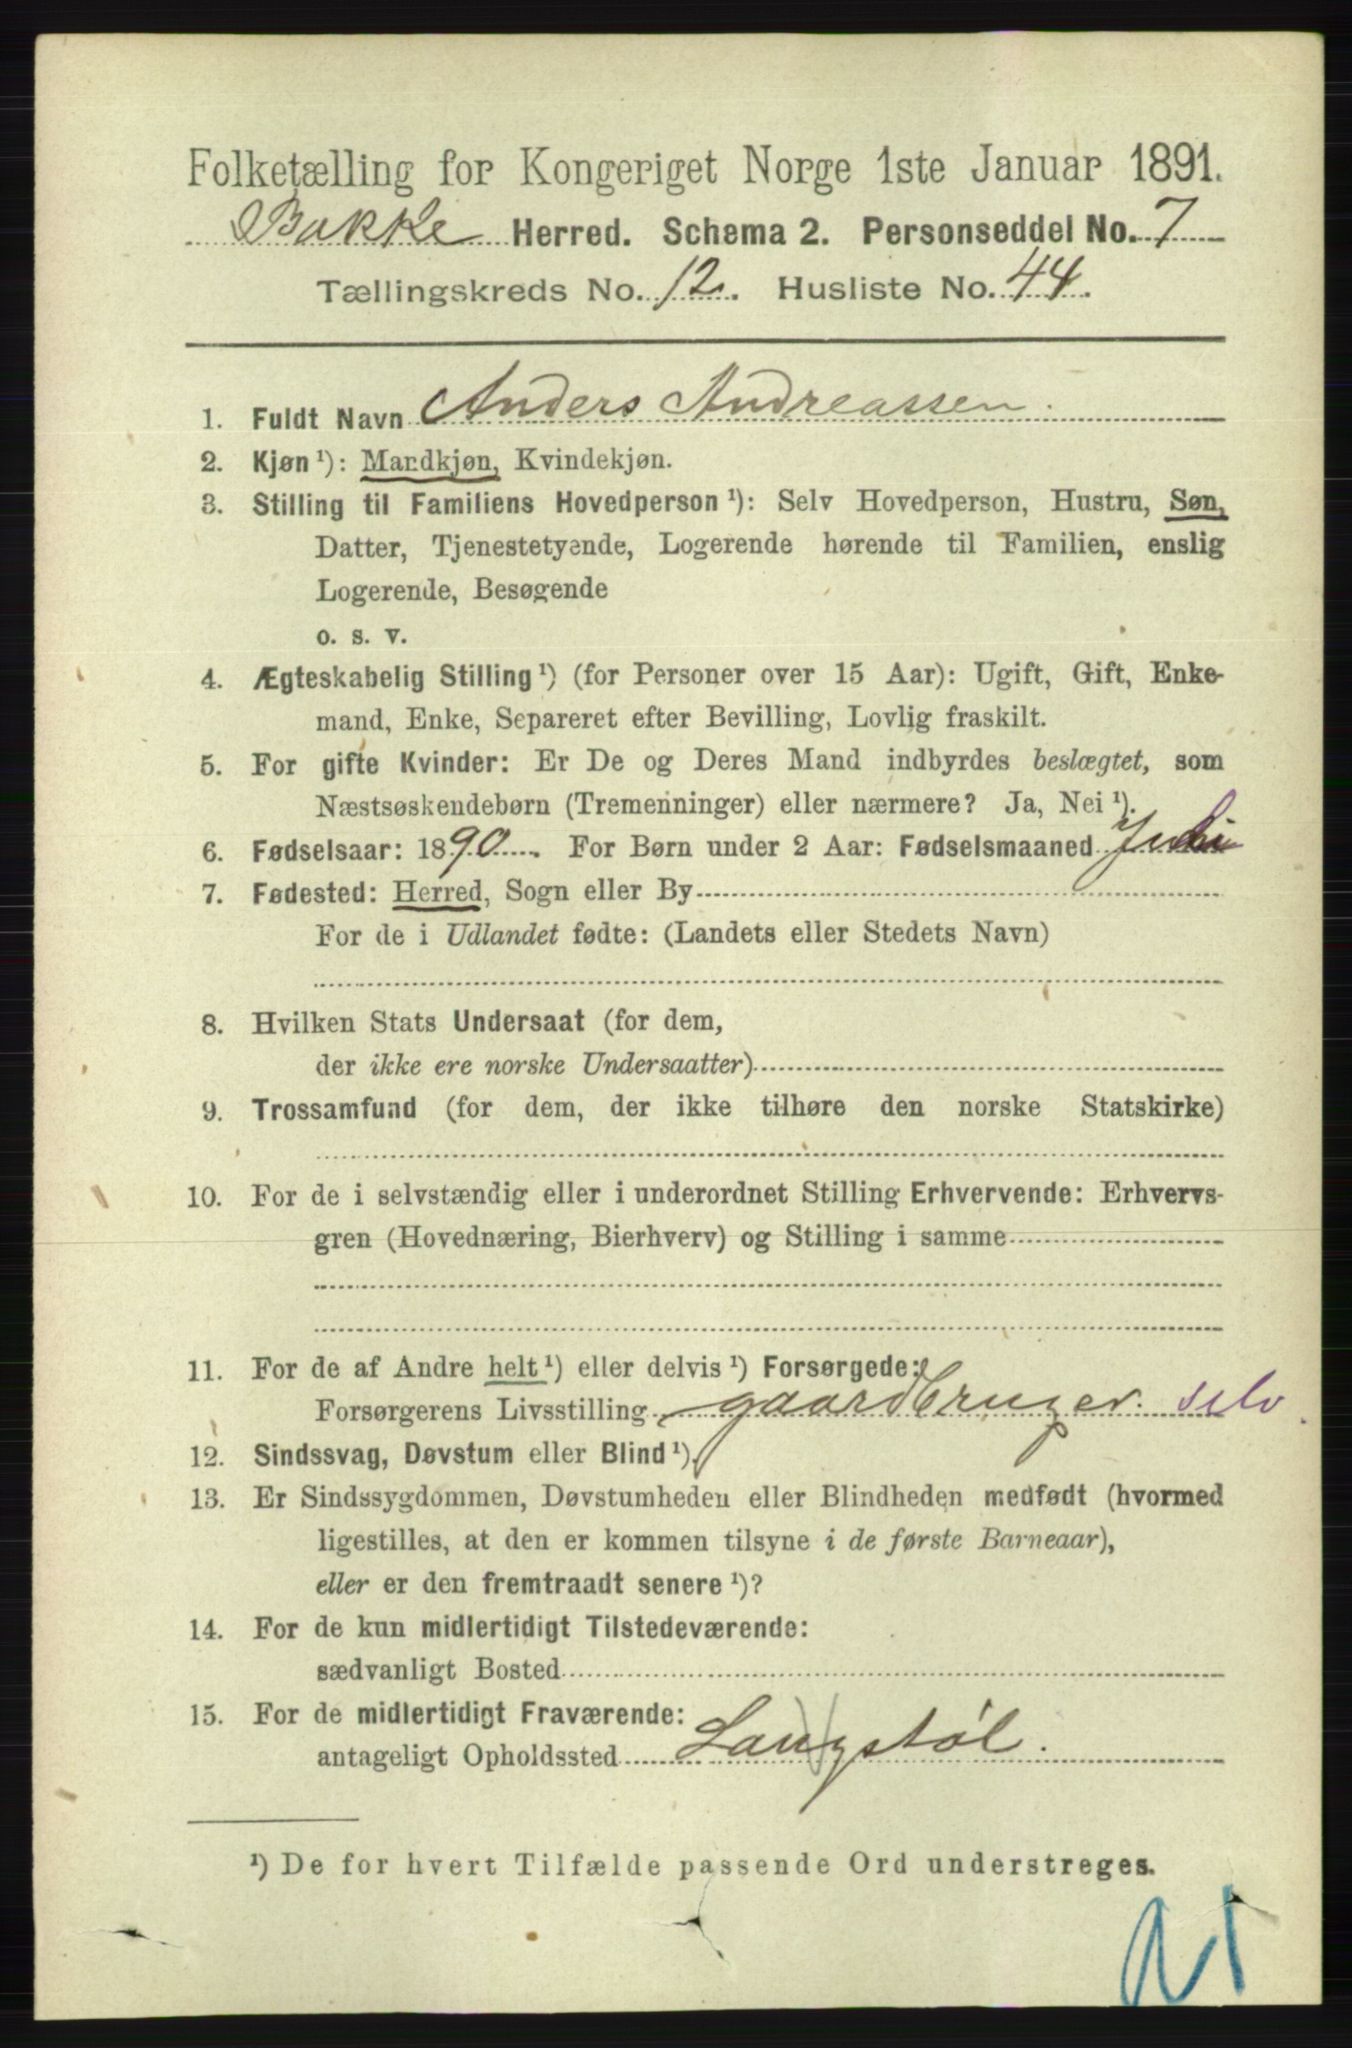 Folketælling for Kongeriget Norge 1ste Januar 1891.
Bakke Herred. Schema 2. Personseddel No. 7
Tællingskreds No. 12. Husliste No. 44.
1. Fuldt Navn Anders Andreassen.
2. Kjøn ¹): Mandkjøn, Kvindekjøn.
3. Stilling til Familiens Hovedperson ¹): Selv Hovedperson, Hustru, Søn,
Datter, Tjenestetyende, Logerende hørende til Familien, enslig
Logerende, Besøgende
o. s. v.
4. Ægteskabelig Stilling ¹) (for Personer over 15 Aar): Ugift, Gift, Enke-
mand, Enke, Separeret efter Bevilling, Lovlig fraskilt.
5. For gifte Kvinder: Er De og Deres Mand indbyrdes beslægtet, som
Næstsøskendebørn (Tremenninger) eller nærmere? Ja, Nei ¹).
6. Fødselsaar: 1890. For Børn under 2 Aar: Fødselsmaaned Juli
7. Fødested: Herred, Sogn eller By
For de i Udlandet fødte: (Landets eller Stedets Navn)
8. Hvilken Stats Undersaat (for dem,
der ikke ere norske Undersaatter)
9. Trossamfund (for dem, der ikke tilhøre den norske Statskirke)
10. For de i selvstændig eller i underordnet Stilling Erhvervende: Erhvervs-
gren (Hovednæring, Bierhverv) og Stilling i samme
11. For de af Andre helt ¹) eller delvis ¹) Forsørgede:
Forsørgerens Livsstilling gaardbruger. selv
12. Sindssvag, Døvstum eller Blind ¹).
13. Er Sindssygdommen, Døvstumheden eller Blindheden medfødt (hvormed
ligestilles, at den er kommen tilsyne i de første Barneaar),
eller er den fremtraadt senere ¹)?
14. For de kun midlertidigt Tilstedeværende:
sædvanligt Bosted
15. For de midlertidigt Fraværende:
antageligt Opholdssted Langstøl.
¹) De for hvert Tilfælde passende Ord understreges.